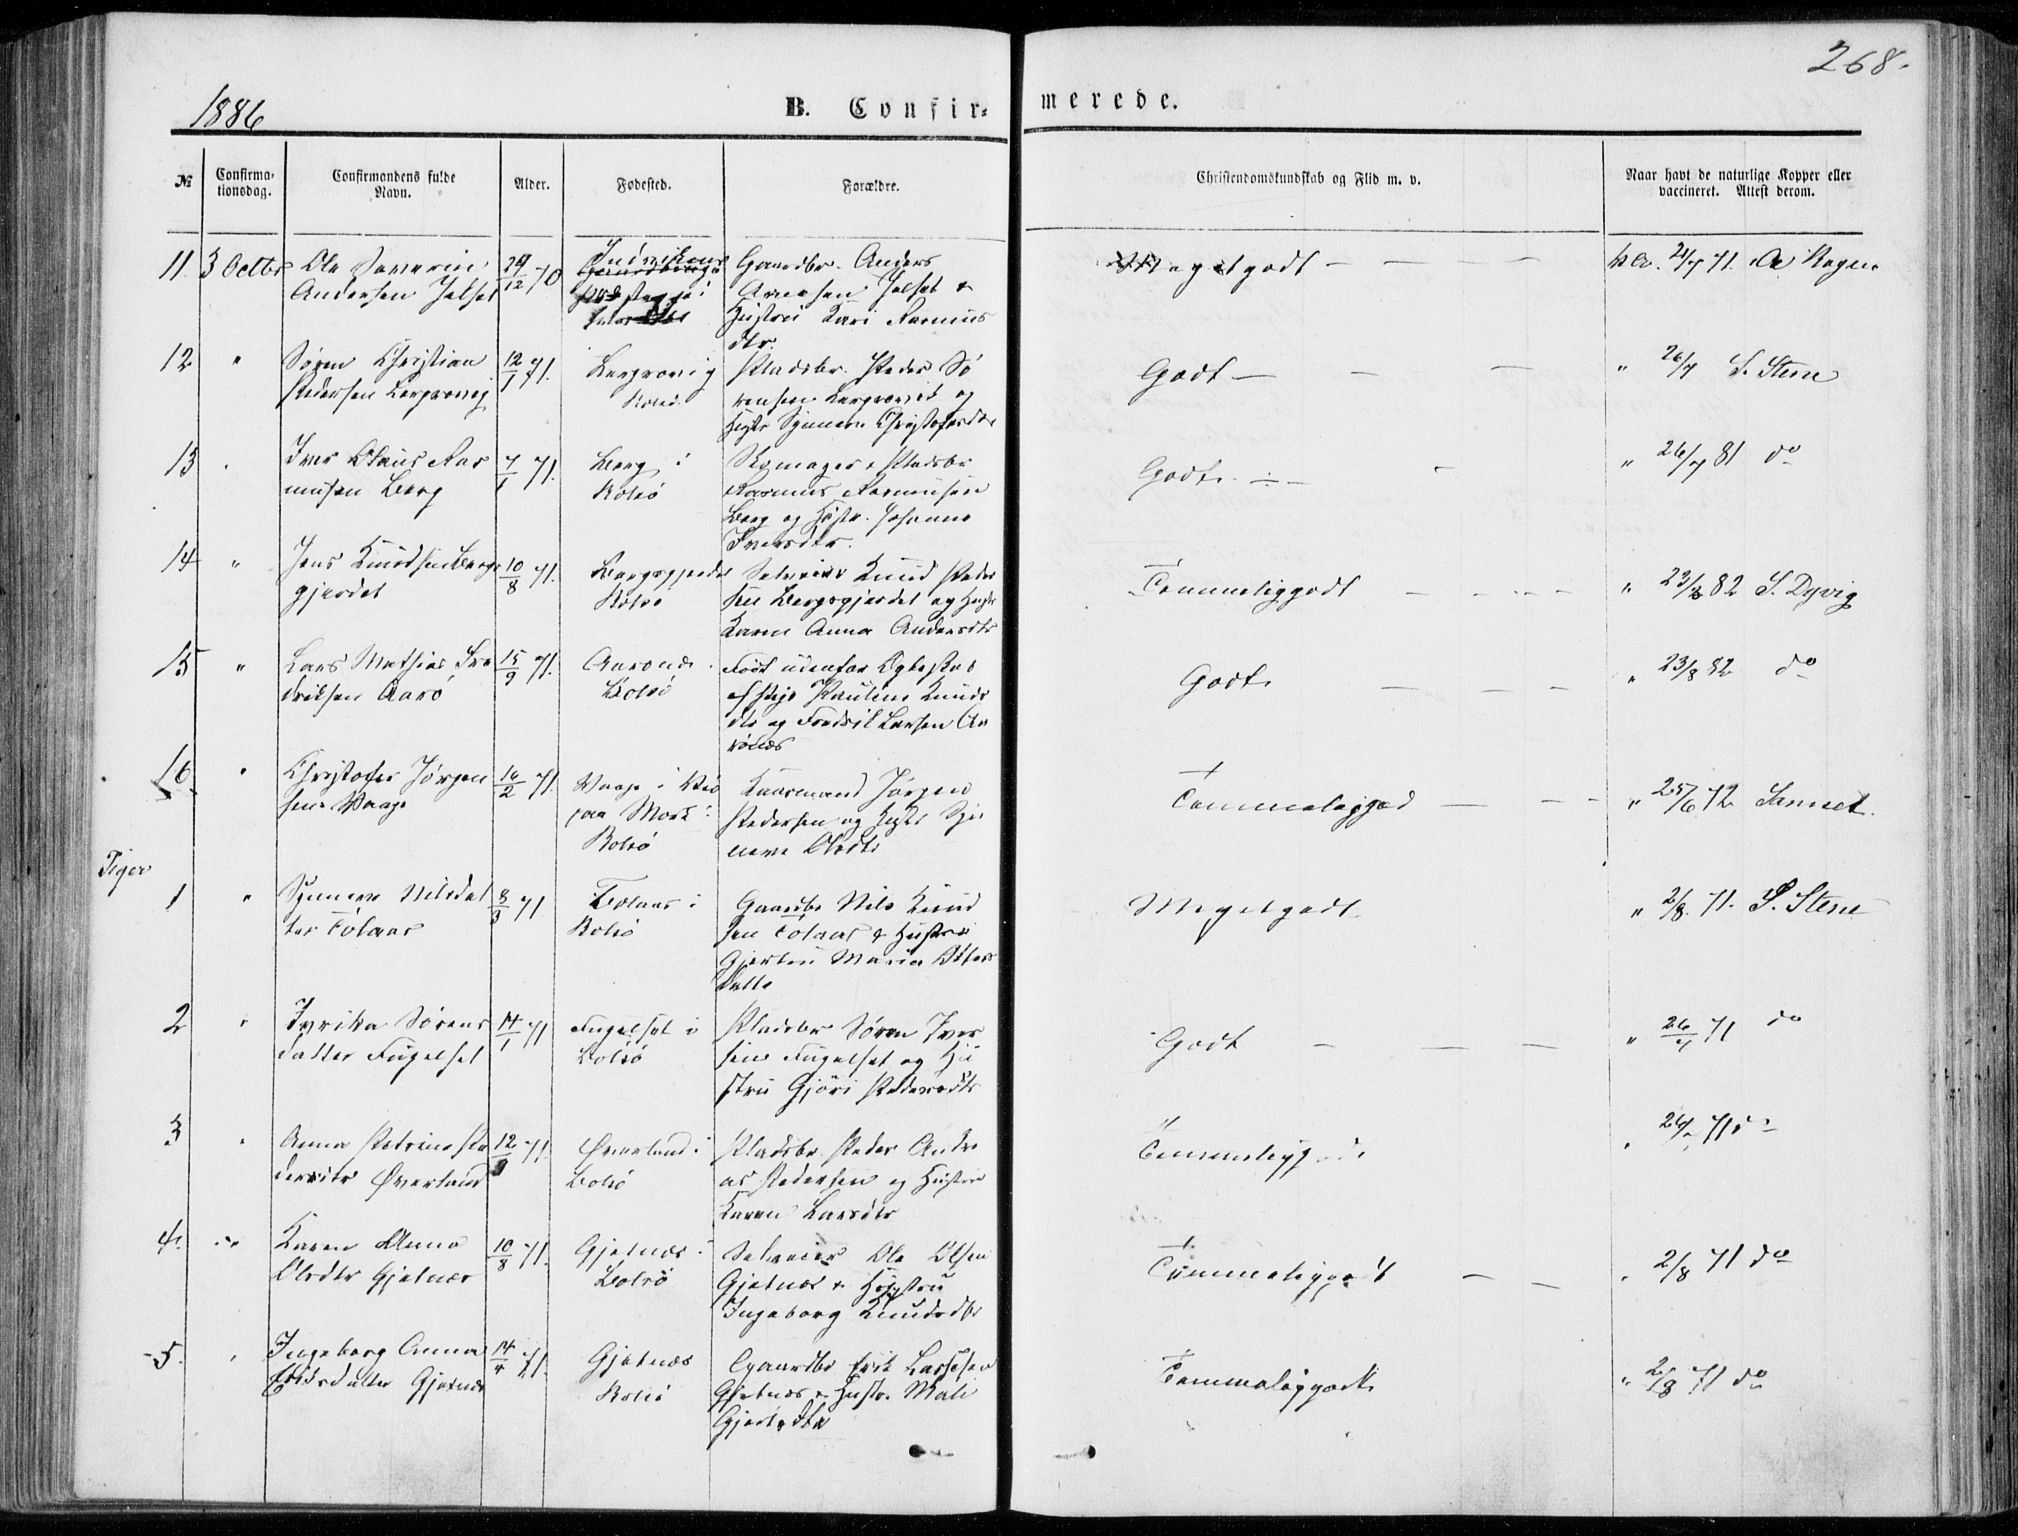 268.
1886
B. Confir-
merede.
№
Confirma-
tionsdag.
Confirmandens fulde
Navn.
Alder.
Fødested.
Forældre.
Christendomskundskab og Flid m. v.
Naar havt de naturlige Kopper eller
vaccineret. Attest derom.
11. 3 Octbr
Ole Severin
Andersen Jelset
29/12 70
Gaardbr. Anders
Arnesen Jelset &
Hustru Kari Rasmus
dtr.
Megetgodt
24/7 71.
12 "
Søren Christian
Pedersen Bergrovig
12/1 71.
Bergrovig
Bolsø
Pladsbr. Peder Sø
rensen Bergrovik og
Hustr Synneve Christofersdtr
Godt
" 26/7 S. Stene
13 "
Iver Olaus Ras
musen Berg
7/1 71.
Berg i
Bolsø
Skomager & Pladsbr
Rasmus Rasmusen
Berg og Hustr. Johanna
Iversdtr.
Godt.
" 26/7 81 do
14 "
Jens Knudsen Bergs
gjerdet
10/8 71.
Bergsgjerdet
Bolsø
Selveier Knud Peder
sen Bergsgjerdet og Hustr
Karen Anna Andersdtr
Temmeliggodt
" 23/8 82 S. Dyvig
15 "
Lars Mathias Fre
driksen Aarø
15/9 71.
Aarønes
Bolsø
Født udenfor Egteskab
af Pige Pauline Knuds
dtr og Fredrik Larsen Aa
rønes
Godt.
" 23/8 82 do
16 "
Christofer Jørgen
sen Vaage
16/2 71.
Vaage i
paa Mork i
Bolsø
Huusmand Jørgen
Pedersen og Hustr Syn
neve Olsdtr
Temmeliggod
" 25/6 72
Piger
1 "
Synneve Nilsdat
ter Følaas
8/3 71
Bolsø
Gaardbr Nils Knud
sen Følaas & Hustru
Gjertru Maria
Datter
Megetgodt
" 2/8. 71. S. Stene
2 "
Fyrika Sørens
datter Fugelset
14/1 71
Fugelset i
Bolsø
Pladsbr Søren Iver
sen Fugelset og Hu
stru Gjøri Pedersdtr
Godt
" 26/7 71 do
3 "
Anna Petrine Pe
dersdtr Øverland
12/9 71.
Øverland i
Bolsø
Pladsbr. Peder Andre
as Pedersen og Hustru
Karen Larsdtr
Temmeliggodt
" 26/7 71 do
4. "
Karen Anna
Olsdtr Gjetnes
10/8 71.
Gjetnes i
Bolsø
Selveier Ole Olsen
Gjetnes & Hustru
Ingeborg Knudsdtr
Temmeliggodt
" 2/8 71 do
5. "
Ingeborg Anna
Eriksdatter Gjetnes
14/4 71.
Gjetnes
Bolsø
Gaardbr Erik Lassesen
Gjetnes & Hustr. Mali
Temmeliggodt
" 2/8 71 do